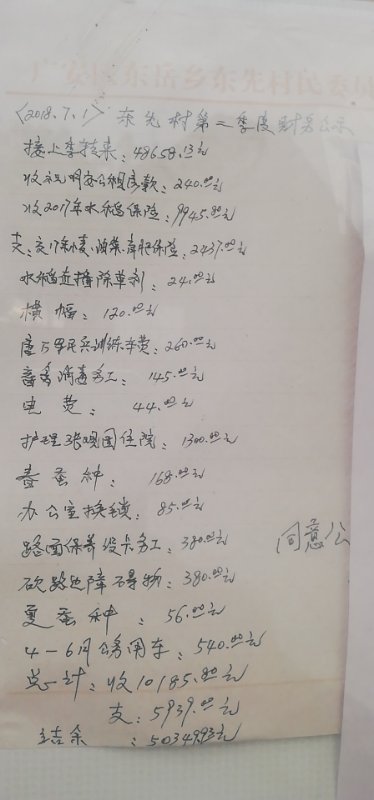 广安区东岳乡东先村民委员
<2018.7.1> 东先村第二季度财务公示
接上季转来:48658.13元
收祝明安公租房款:240.00元
收2017年水稻保险:9945.80元
支:交17年小麦、油菜、育肥保险:2437.00元
水稻直播除草剂:24.00元
横幅:120.00元
民兵训练车费:260.00元
畜禽消毒务工:145.00元
电费:44.00元
护理张观国住院:1300.00元
春蚕种:168.00元
办公室换锁:85.00元
路面保养设卡务工:380.00元
砍路边障碍物:380.00元
夏蚕种:56.00元
4-6月公务用车:540.00元
总计:收10185.80元
支:5939.00元
结余:50349.93元
同意公